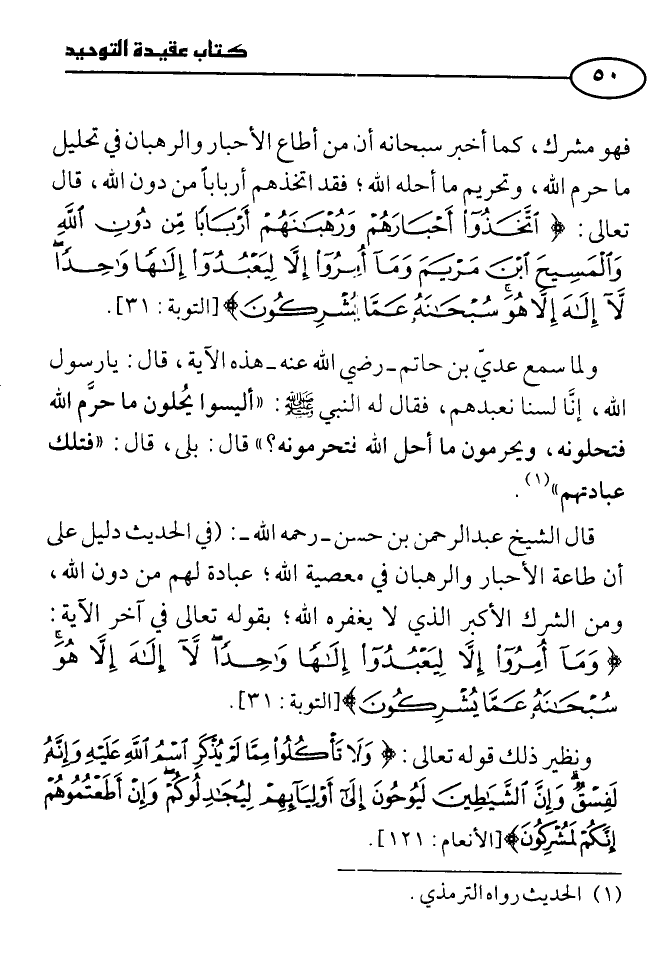 كتاب عقيدة التوحيد
٥٠
فهو مشرك، كما أخبر سبحانه أن من أطاع الأحبار والرهبان في تحليل
ما حرم الله، وتحريم ما أحله الله؛ فقد اتخذهم أرباباً من دون الله، قال
تعالى: ﴿ ٱتَّخَذُوٓاْ أَحْبَارَهُمْ وَرُهْبَٰنَهُمْ أَرْبَابًا مِّن دُونِ ٱللَّهِ
وَٱلْمَسِيحَ ٱبْنَ مَرْيَمَ وَمَآ أُمِرُوٓاْ إِلَّا لِيَعْبُدُوٓاْ إِلَٰهًا وَٰحِدًاۖ
لَّآ إِلَٰهَ إِلَّا هُوَۚ سُبْحَٰنَهُۥ عَمَّا يُشْرِكُونَ﴾[التوبة: ٣١].
ولما سمع عديّ بن حاتم ـ رضي الله عنه ـ هذه الآية، قال: يارسول
الله، إنَّا لسنا نعبدهم، فقال له النبي ﷺ: «أليسوا يُحلون ما حرَّم الله
فتحلونه، ويحرمون ما أحل الله فتحرمونه؟» قال: بلى، قال: «فتلك
عبادتهم»(١).
قال الشيخ عبدالرحمن بن حسن ـ رحمه الله ـ: (في الحديث دليل على
أن طاعة الأحبار والرهبان في معصية الله؛ عبادة لهم من دون الله،
ومن الشرك الأكبر الذي لا يغفره الله؛ بقوله تعالى في آخر الآية:
﴿ وَمَآ أُمِرُوٓاْ إِلَّا لِيَعْبُدُوٓاْ إِلَٰهًا وَٰحِدًاۖ لَّآ إِلَٰهَ إِلَّا هُوَۚ
سُبْحَٰنَهُۥ عَمَّا يُشْرِكُونَ﴾[التوبة: ٣١].
ونظير ذلك قوله تعالى: ﴿ وَلَا تَأْكُلُواْ مِمَّا لَمْ يُذْكَرِ ٱسْمُ ٱللَّهِ عَلَيْهِ وَإِنَّهُۥ
لَفِسْقٌۗ وَإِنَّ ٱلشَّيَٰطِينَ لَيُوحُونَ إِلَىٰٓ أَوْلِيَآئِهِمْ لِيُجَٰدِلُوكُمْۖ وَإِنْ أَطَعْتُمُوهُمْ
إِنَّكُمْ لَمُشْرِكُونَ﴾[الأنعام: ١٢١].
(١) الحديث رواه الترمذي.